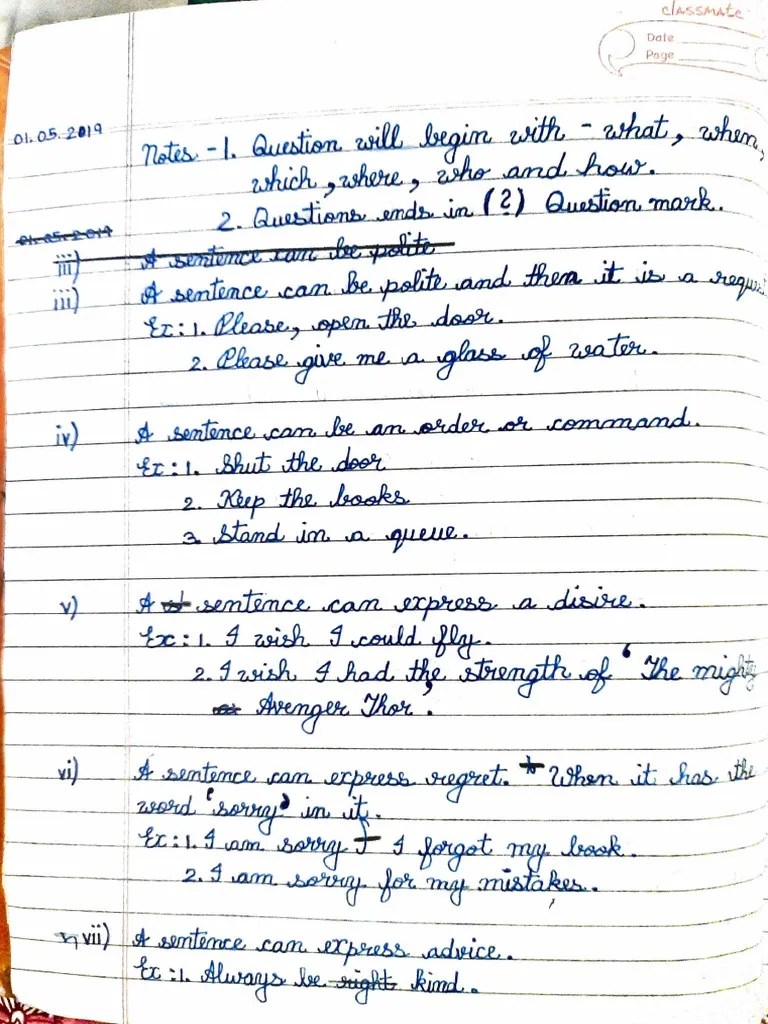 classmate
Date
Page
01.05.2019
Notes - 1. Question will begin with - what, when,
which, where, who and how.
2. Questions ends in (?) Question mark.
01.05.2019
iii) A sentence can be polite
iii) A sentence can be polite and then it is a reque
Ex: 1. Please, open the door.
2. Please give me a glass of water.
iv) A sentence can be an order or command.
Ex: 1. Shut the door
2. Keep the books
3. Stand in a queue.
v) A sentence can express a disire.
Ex: 1. I wish I could fly.
2. I wish I had the strength of 'The mighty
Avenger Thor'.
vi) A sentence can express regret. When it has the
word 'sorry' in it.
Ex: 1. I am sorry I I forgot my book.
2. I am sorry for my mistakes.
vii) A sentence can express advice.
Ex: 1. Always be right kind.